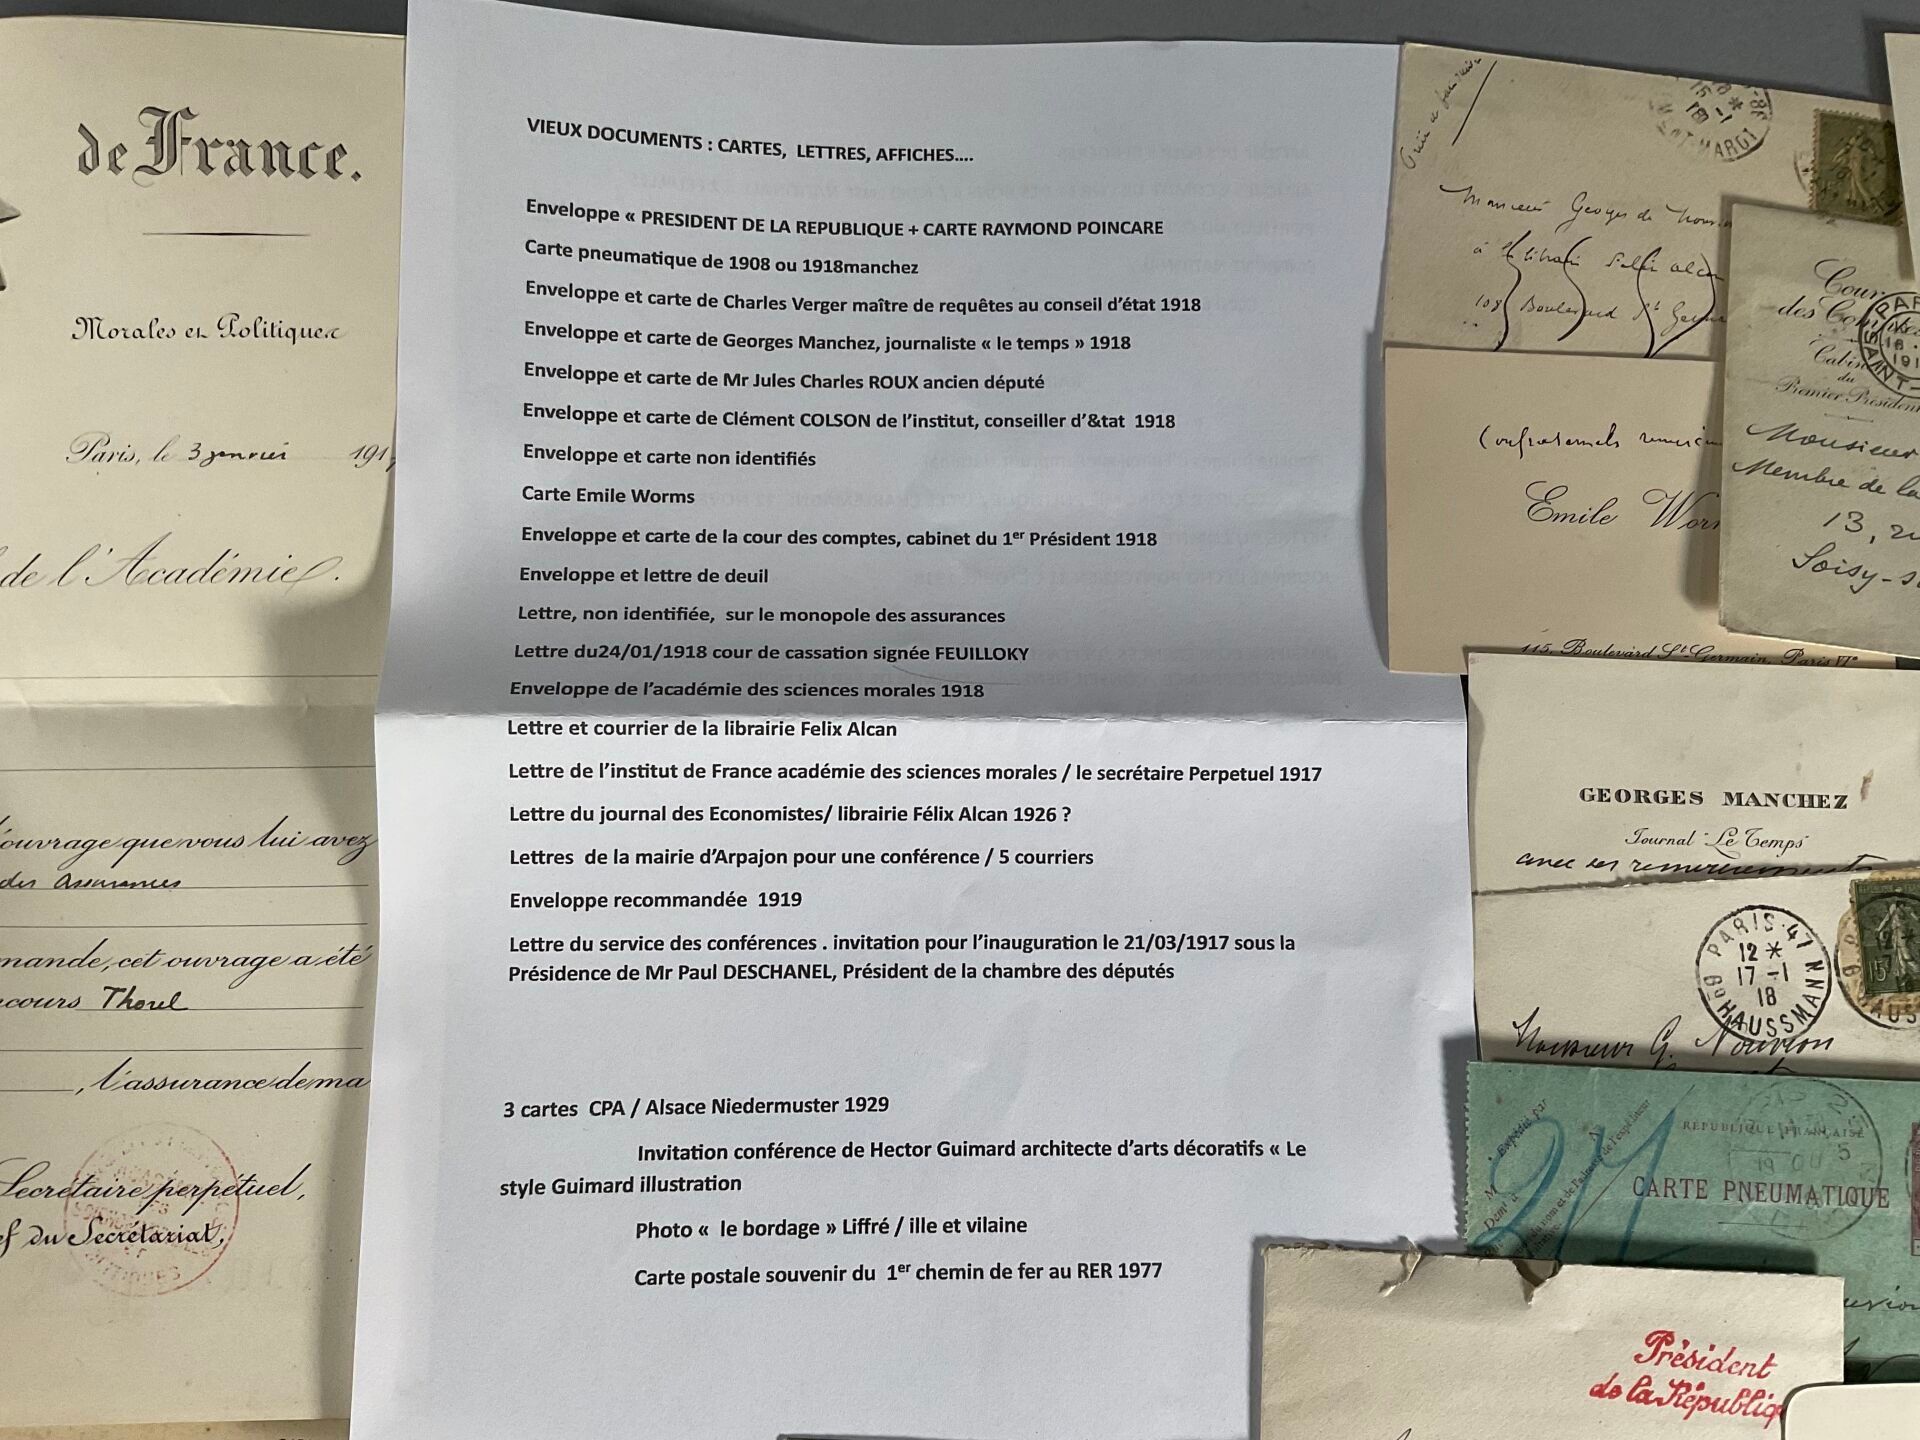 de France.
Morales et Politiques
Paris, le 3 janvier 191
de l'Académie.
ouvrage que vous lui avez
des Assurances
mande, cet ouvrage a été
cours Thorel
, l'assurance de ma
Secrétaire perpétuel,
f du Secrétariat,
VIEUX DOCUMENTS : CARTES, LETTRES, AFFICHES....
Enveloppe « PRESIDENT DE LA REPUBLIQUE + CARTE RAYMOND POINCARE
Carte pneumatique de 1908 ou 1918manchez
Enveloppe et carte de Charles Verger maître de requêtes au conseil d'état 1918
Enveloppe et carte de Georges Manchez, journaliste « le temps » 1918
Enveloppe et carte de Mr Jules Charles ROUX ancien député
Enveloppe et carte de Clément COLSON de l'institut, conseiller d'&tat 1918
Enveloppe et carte non identifiés
Carte Emile Worms
Enveloppe et carte de la cour des comptes, cabinet du 1er Président 1918
Enveloppe et lettre de deuil
Lettre, non identifiée, sur le monopole des assurances
Lettre du24/01/1918 cour de cassation signée FEUILLOKY
Enveloppe de l'académie des sciences morales 1918
Lettre et courrier de la librairie Felix Alcan
Lettre de l'institut de France académie des sciences morales / le secrétaire Perpetuel 1917
Lettre du journal des Economistes/ librairie Félix Alcan 1926 ?
Lettres de la mairie d'Arpajon pour une conférence / 5 courriers
Enveloppe recommandée 1919
Lettre du service des conférences . invitation pour l'inauguration le 21/03/1917 sous la
Présidence de Mr Paul DESCHANEL, Président de la chambre des députés
3 cartes CPA / Alsace Niedermuster 1929
Invitation conférence de Hector Guimard architecte d'arts décoratifs « Le
style Guimard illustration
Photo « le bordage » Liffré / ille et vilaine
Carte postale souvenir du 1er chemin de fer au RER 1977
Monsieur Georges de
à la librairie Félix Alcan
108 Boulevard St Germa
Emile Wor
115, Boulevard St Germain, Paris VIe
Cour
des Comptes
Cabinet
du
Premier Président
Monsieur
Membre de la
13, ru
Soisy-s
GEORGES MANCHEZ
Journal Le Temps
avec ses remerciements
PARIS·47
12 *
17 -1
18
HAUSSMANN
Monsieur G. Nouvion
RÉPUBLIQUE FRANÇAISE
CARTE PNEUMATIQUE
Expédié par
Président
de la Républiq